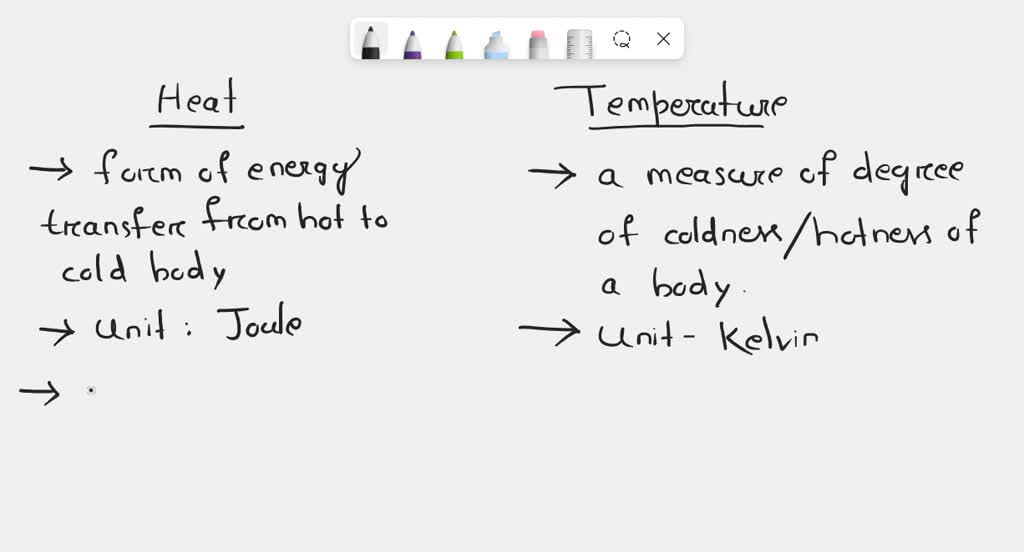 Heat
→ form of energy
transfer from hot to
cold body
→ Unit : Joule
→
Temperature
→ a measure of degree
of coldness/hotness of
a body.
→ Unit - Kelvin